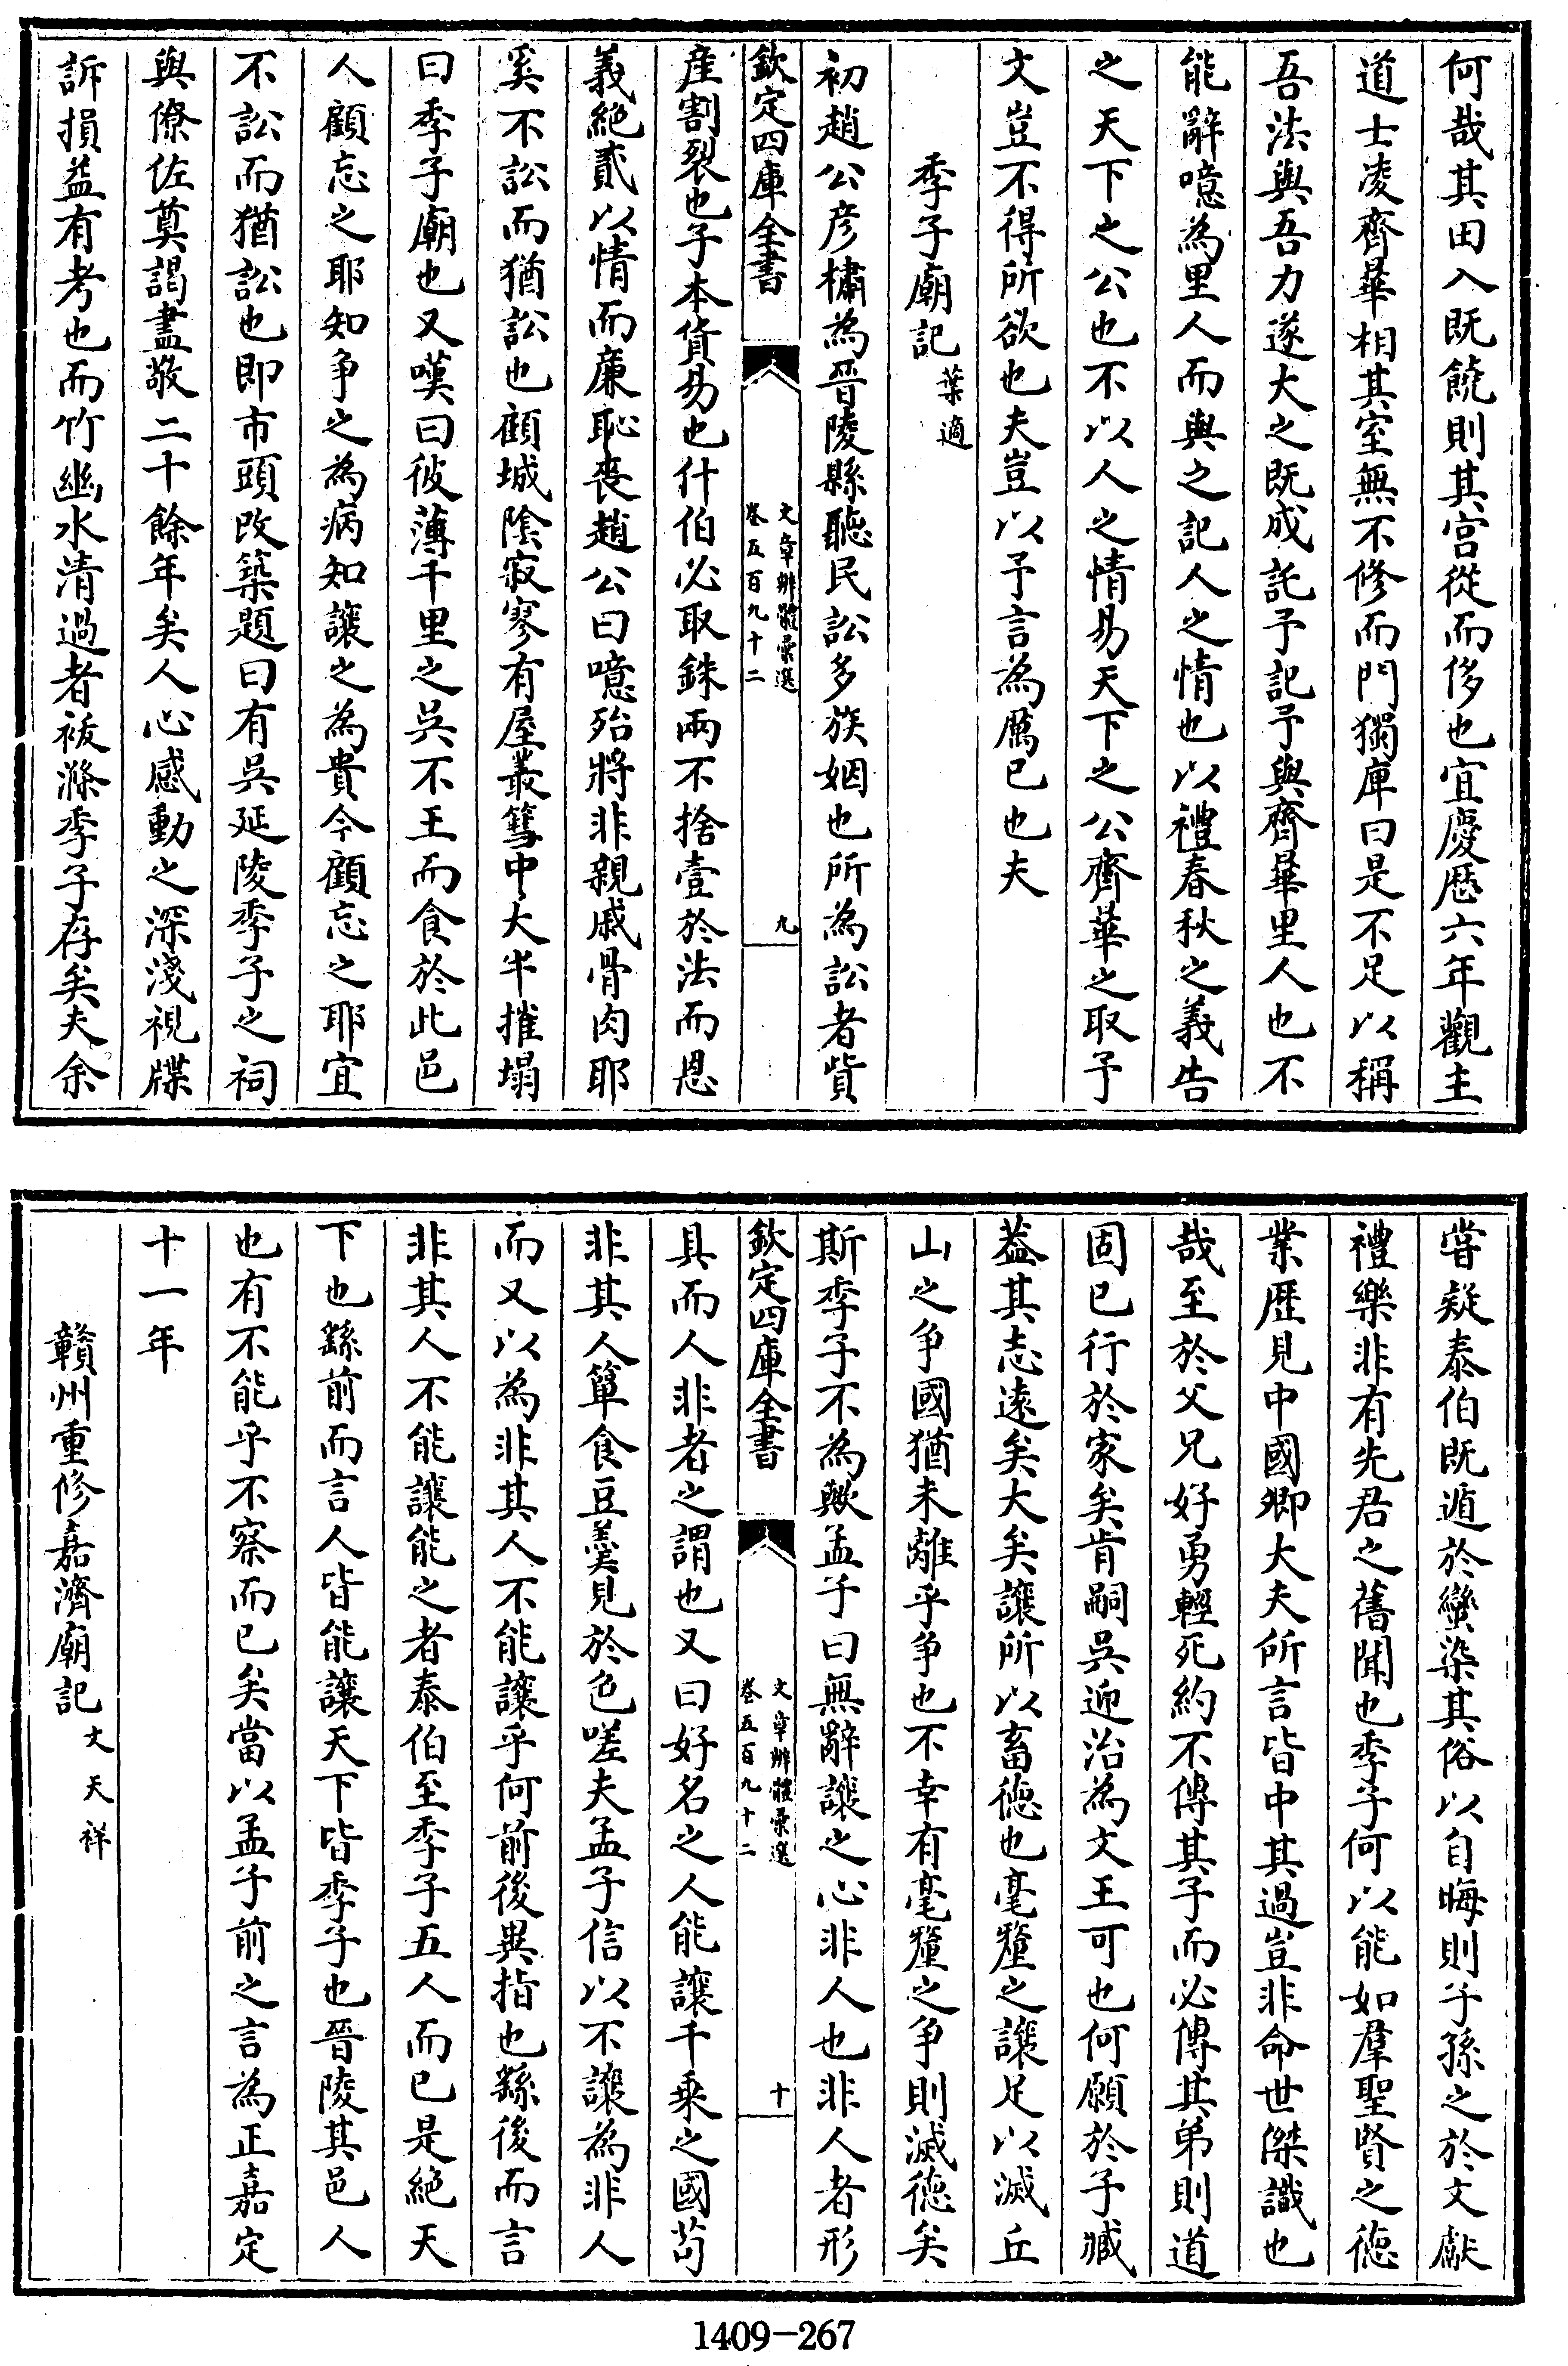 何哉其田入既饒則其宫從而侈也宜慶厯六年觀主
道士凌齊畢相其室無不修而門獨庳曰是不足以稱
吾法與吾力遂大之既成託予記予與齊畢里人也不
能辭噫為里人而與之記人之情也以禮春秋之義告
之天下之公也不以人之情易天下之公齊畢之取予
文豈不得所欲也夫豈以予言為厲已也夫
季子廟記葉適
初趙公彦橚為晉陵縣聽民訟多族姻也所為訟者貲
欽定四庫全書
文章辨體彚選
卷五百九十二
九
産割裂也子本貨易也什伯必取銖兩不捨壹於法而恩
義絶貳以情而廉恥喪趙公曰噫殆將非親戚骨肉耶
奚不訟而猶訟也顧城隂寂寥有屋叢篿中大半摧塌
曰季子廟也又嘆曰彼薄千里之吳不王而食於此邑
人顧忘之耶知争之為病知讓之為貴今顧忘之耶宜
不訟而猶訟也即市頭改築題曰有吳延陵季子之祠
與僚佐奠謁盡敬二十餘年矣人心感動之深淺視牒
訴損益有考也而竹幽水清過者祓滌季子存矣夫余
嘗疑泰伯既遁於蠻染其俗以自晦則子孫之於文獻
禮樂非有先君之舊聞也季子何以能如羣聖賢之徳
業歴見中國卿大夫所言皆中其過豈非命世傑識也
哉至於父兄好勇輕死約不傳其子而必傳其弟則道
固已行於家矣肯嗣吳迎治為文王可也何願於子臧
葢其志遠矣大矣讓所以畜徳也毫釐之讓足以滅丘
山之争國猶未離乎争也不幸有毫釐之争則滅徳矣
斯季子不為歟孟子曰無辭讓之心非人也非人者形
欽定四庫全書
文章辨體彚選
卷五百九十二
十
具而人非者之謂也又曰好名之人能讓千乗之國茍
非其人簞食豆羮見於色嗟夫孟子信以不讓為非人
而又以為非其人不能讓乎何前後異指也繇後而言
非其人不能讓能之者泰伯至季子五人而已是絶天
下也繇前而言人皆能讓天下皆季子也晉陵其邑人
也有不能乎不察而已矣當以孟子前之言為正嘉定
十一年
贛州重修嘉濟廟記文天祥
1409-267